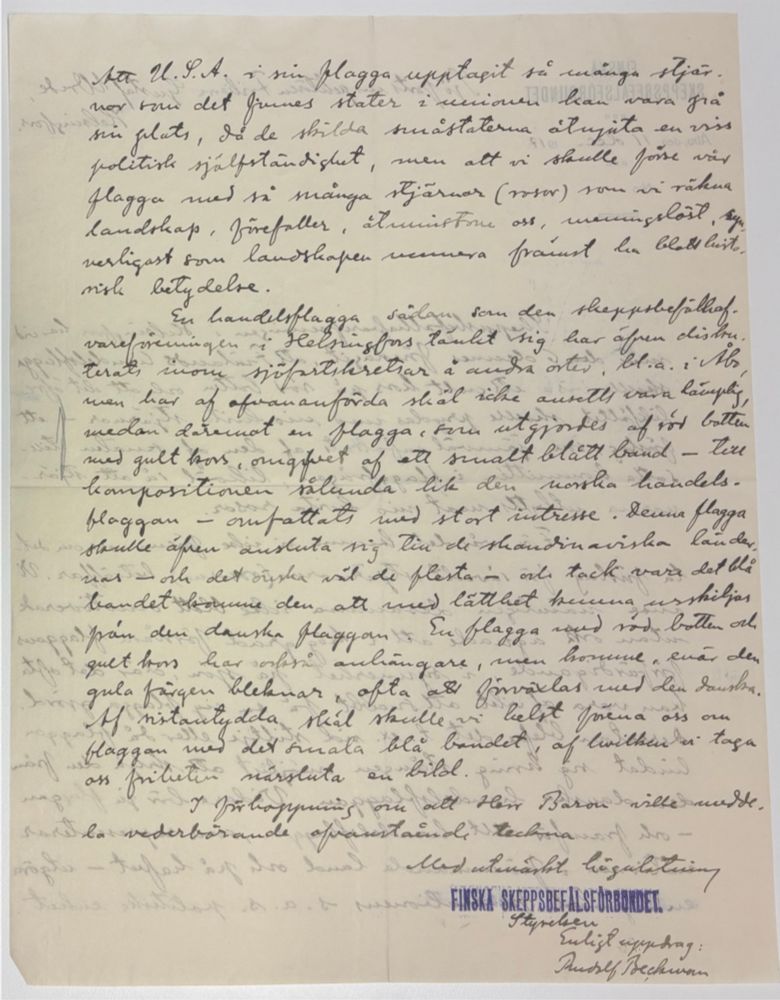 Att U.S.A. i sin flagga upptagit så många stjär-
nor som det finnes stater i unionen kan vara på
sin plats, då de skilda småstaterna åtnjuta en viss
politisk självständighet, men att vi skulle förse vår
flagga med så många stjärnor (rosor) som vi räkna
landskap, förefaller, åtminstone oss, meningslöst,
verligast som landskapen numera främst ha blott histo-
risk betydelse.
En handelsflagga sådan som den skeppsbefälhaf-
vareföreningen i Helsingfors tänkt sig har äfven disku-
terats inom sjöfartskretsar å andra orter, bl.a. i Åbo,
men har af ofvananförda skäl icke ansetts vara lämplig,
medan däremot en flagga, som utgjordes af röd botten
med gult kors, omgifvet af ett smalt blått band – till
kompositionen sålunda lik den norska handels-
flaggan – omfattats med stort intresse. Denna flagga
skulle äfven ansluta sig till de skandinaviska länder-
nas – och det önska väl de flesta – och tack vare det blå
bandet komme den att med lätthet kunna urskiljas
från den danska flaggan. En flagga med röd botten och
gult kors har också anhängare, men komme, enär den
gula färgen bleknar, ofta att förväxlas med den danska.
Af sistantydda skäl skulle vi helst förena oss om
flaggan med det smala blå bandet, af hvilken vi taga
oss friheten närsluta en bild.
I förhoppning om att Herr Baron ville medde-
la vederbörande ofvanstående teckna
Med utmärkt högaktning
FINSKA SKEPPSBEFÄLSFÖRBUNDET.
Styrelsen
Enligt uppdrag:
Rudolf Beckman